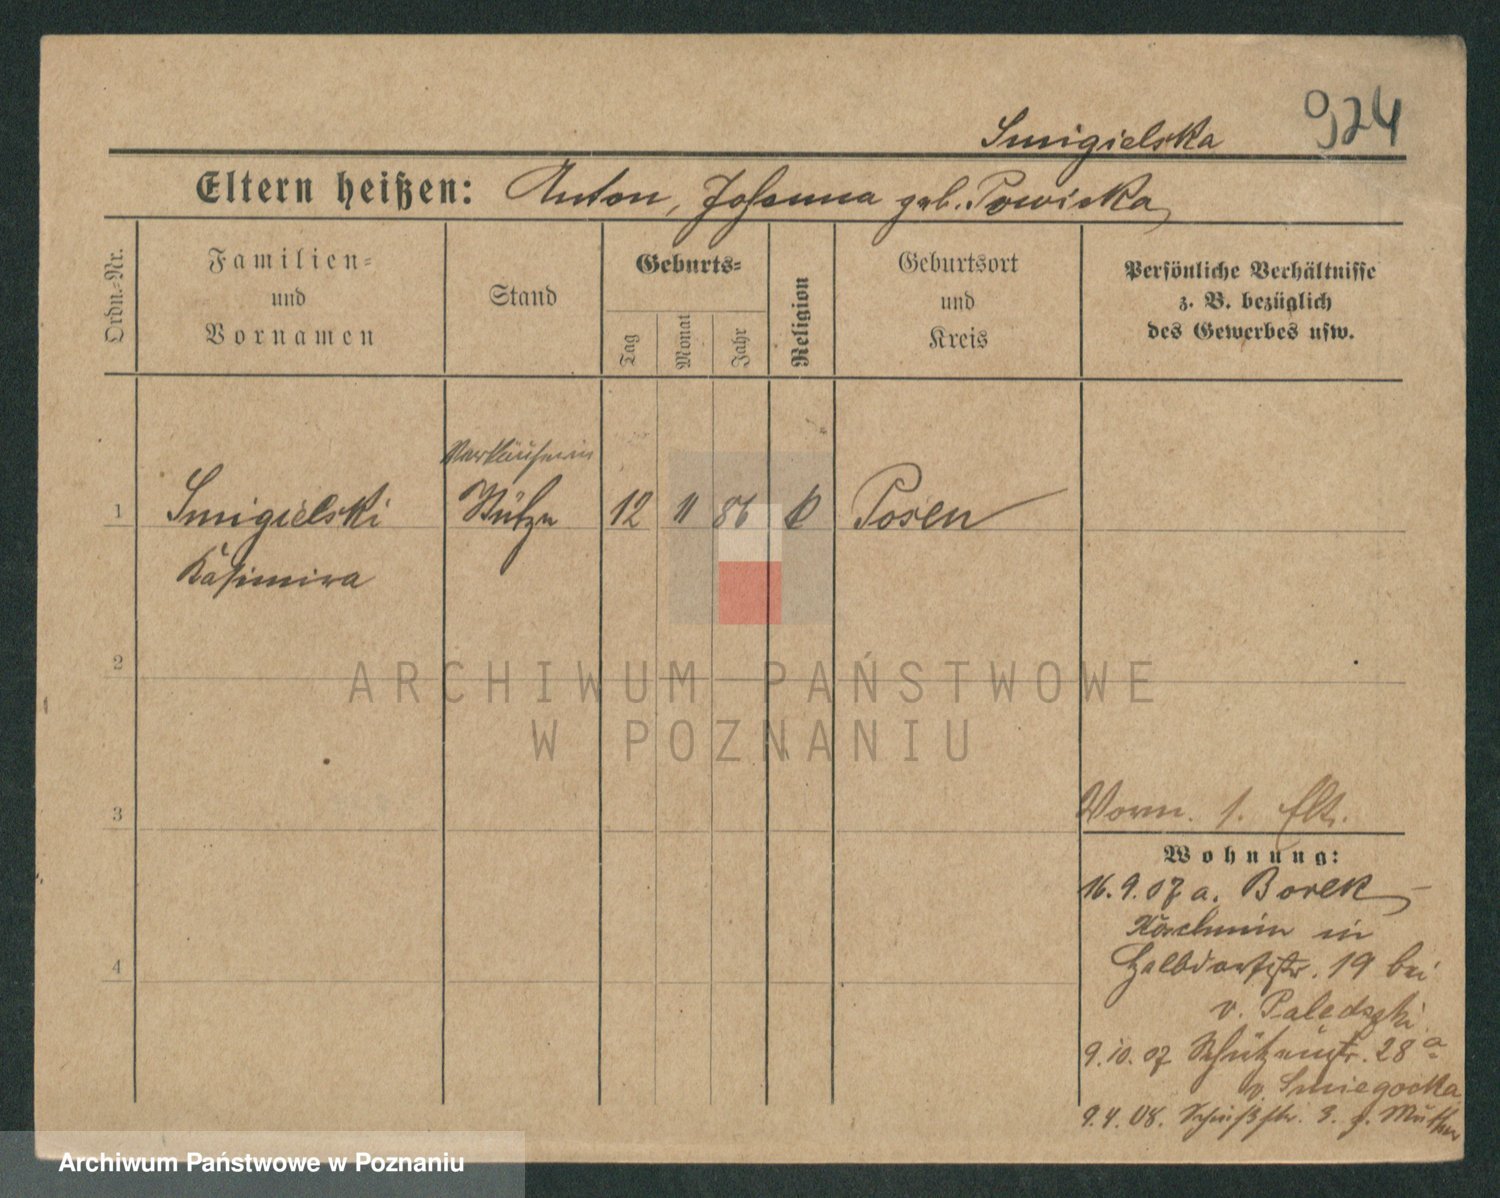 924
Smigielska
Eltern heißen: Anton, Johanna geb. Powicka
Ordn.-Nr.
Familien-
und
Vornamen
Stand
Geburts-
Tag
Monat
Jahr
Religion
Geburtsort
und
Kreis
Persönliche Verhältnisse
z. B. bezüglich
des Gewerbes usw.
Verkäuferin
1 Smigielski Stütze 12 11 86 k Posen
Kasimira
2
ARCHIWUM PAŃSTWOWE
W POZNANIU
3
Vorm. s. Elt.
Wohnung:
16.9.07 a. Borek
Koschmin in
Halbdorfstr. 19 bei
v.
4
9.10.07 Schützenstr. 28a
v. Smiegocka
9.4.08. Schießstr. 3. z. Mutter
Archiwum Państwowe w Poznaniu